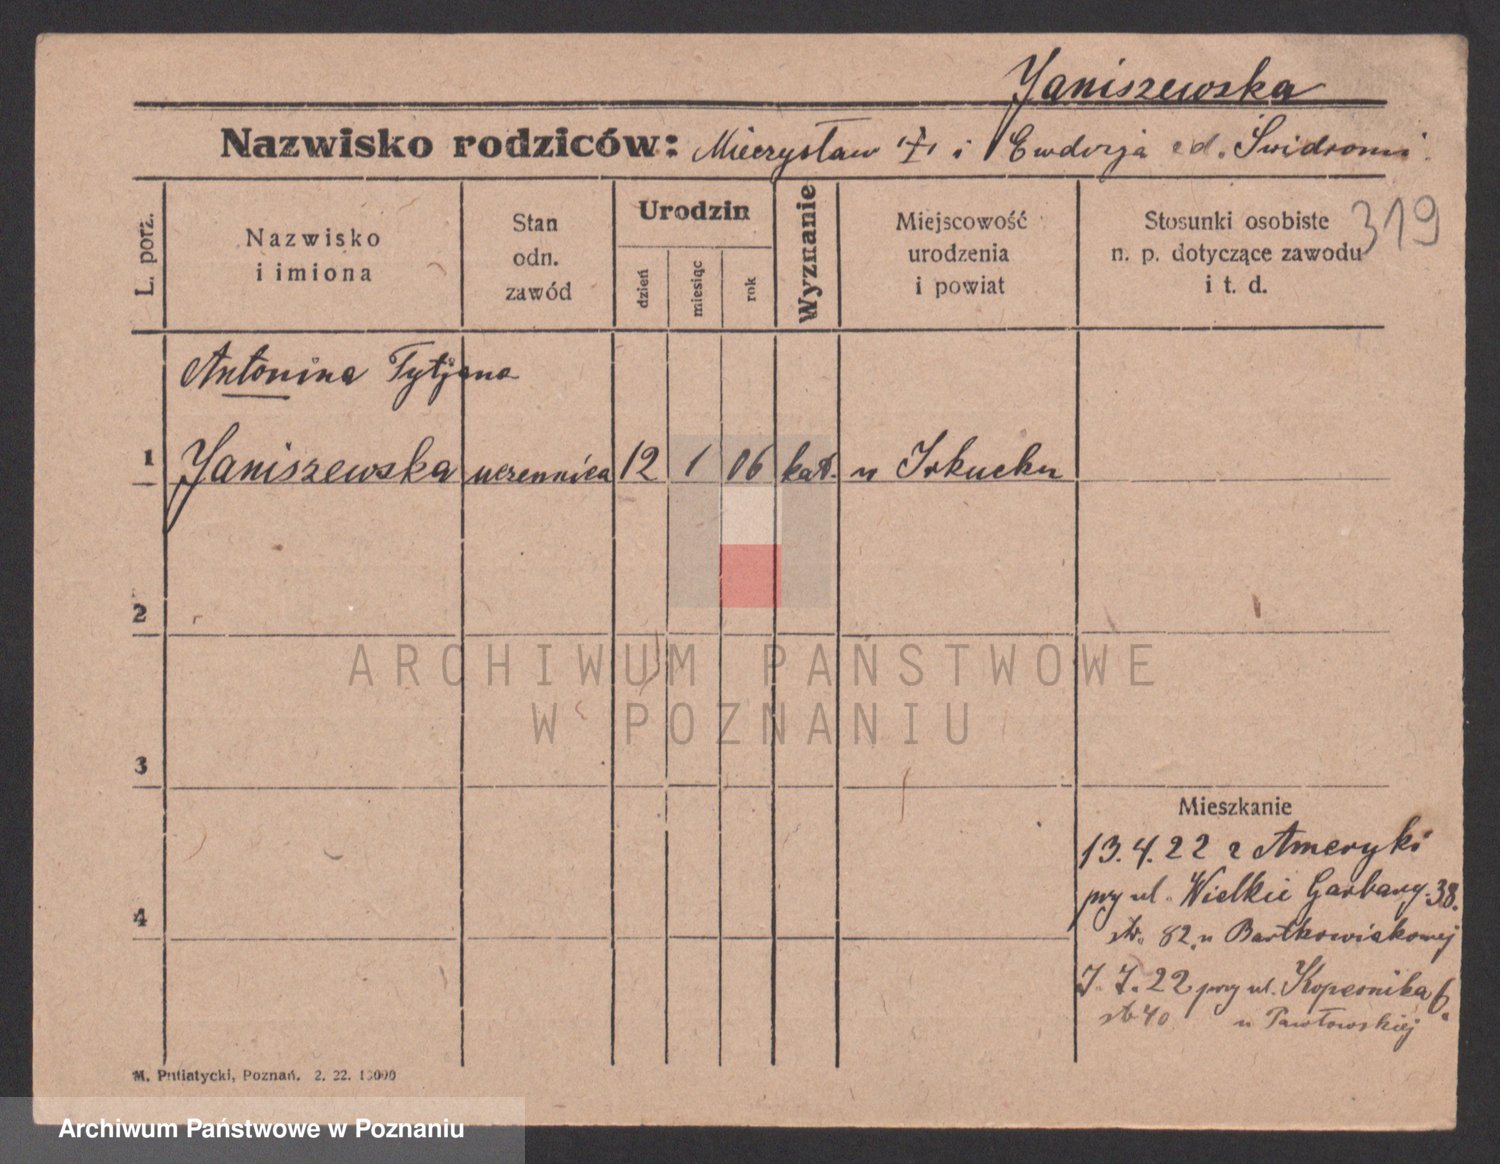 Janiszewska
Nazwisko rodziców: Mieczysław i Ewdozja zd.
319
L. porz.
Nazwisko
i imiona
Stan
odn.
zawód
Urodzin
dzień
miesiąc
rok
Wyznanie
Miejscowość
urodzenia
i powiat
Stosunki osobiste
n. p. dotyczące zawodu
i t. d.
Antonina Tytjana
1 Janiszewska uczennica 12 1 06 kat. w Irkucku
2
3
4
Mieszkanie
13.4.22 z Ameryki
przy ul. Wielkie Garbary 38.
str. 82 u Bartkowiakowej
7.7.22 przy ul. Kopernika 6.
str 40 u Pawłowskiej
M. Putiatycki, Poznań. 2. 22. 13000
ARCHIWUM PAŃSTWOWE
W POZNANIU
Archiwum Państwowe w Poznaniu